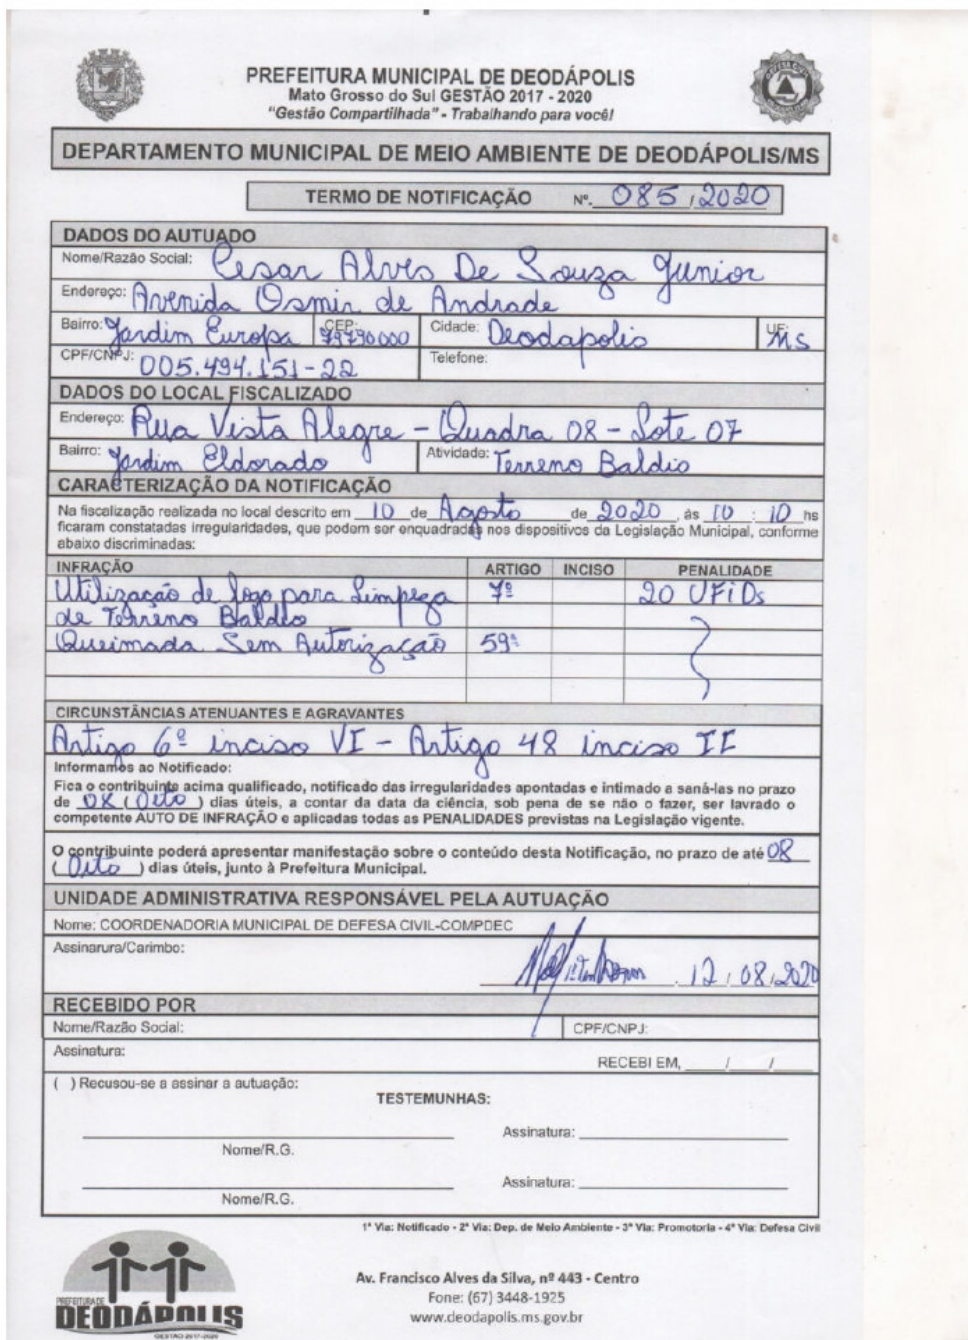 PREFEITURA MUNICIPAL DE DEODÁPOLIS
Mato Grosso do Sul GESTÃO 2017 - 2020
"Gestão Compartilhada" - Trabalhando para você!
DEPARTAMENTO MUNICIPAL DE MEIO AMBIENTE DE DEODÁPOLIS/MS
TERMO DE NOTIFICAÇÃO Nº. 085/2020
DADOS DO AUTUADO
Nome/Razão Social: Cesar Alves De Souza Junior
Endereço: Avenida Osmir de Andrade
Bairro: Jardim Europa CEP: 79790000 Cidade: Deodapolis UF: MS
CPF/CNPJ: 005.494.151-22 Telefone:
DADOS DO LOCAL FISCALIZADO
Endereço: Rua Vista Alegre - Quadra 08 - Lote 07
Bairro: Jardim Eldorado Atividade: Terreno Baldio
CARACTERIZAÇÃO DA NOTIFICAÇÃO
Na fiscalização realizada no local descrito em 10 de Agosto de 2020, às 10 : 10 hs
ficaram constatadas irregularidades, que podem ser enquadradas nos dispositivos da Legislação Municipal, conforme
abaixo discriminadas:
INFRAÇÃO ARTIGO INCISO PENALIDADE
Utilização de fogo para Limpeza 7º 20 UFiDs
de Terreno Baldio
Queimada Sem Autorização 59º
CIRCUNSTÂNCIAS ATENUANTES E AGRAVANTES
Artigo 6º inciso VI - Artigo 48 inciso II
Informamos ao Notificado:
Fica o contribuinte acima qualificado, notificado das irregularidades apontadas e intimado a saná-las no prazo
de 08 ( Oito ) dias úteis, a contar da data da ciência, sob pena de se não o fazer, ser lavrado o
competente AUTO DE INFRAÇÃO e aplicadas todas as PENALIDADES previstas na Legislação vigente.
O contribuinte poderá apresentar manifestação sobre o conteúdo desta Notificação, no prazo de até 08
( Oito ) dias úteis, junto à Prefeitura Municipal.
UNIDADE ADMINISTRATIVA RESPONSÁVEL PELA AUTUAÇÃO
Nome: COORDENADORIA MUNICIPAL DE DEFESA CIVIL-COMPDEC
Assinarura/Carimbo:
12/08/2020
RECEBIDO POR
Nome/Razão Social: CPF/CNPJ:
Assinatura:
RECEBI EM, ____/____/____
( ) Recusou-se a assinar a autuação:
TESTEMUNHAS:
Assinatura:
Nome/R.G.
Assinatura:
Nome/R.G.
1ª Via: Notificado - 2ª Via: Dep. de Meio Ambiente - 3ª Via: Promotoria - 4ª Via: Defesa Civil
PREFEITURA DE
DEODÁPOLIS
GESTÃO 2017-2020
Av. Francisco Alves da Silva, nº 443 - Centro
Fone: (67) 3448-1925
www.deodapolis.ms.gov.br